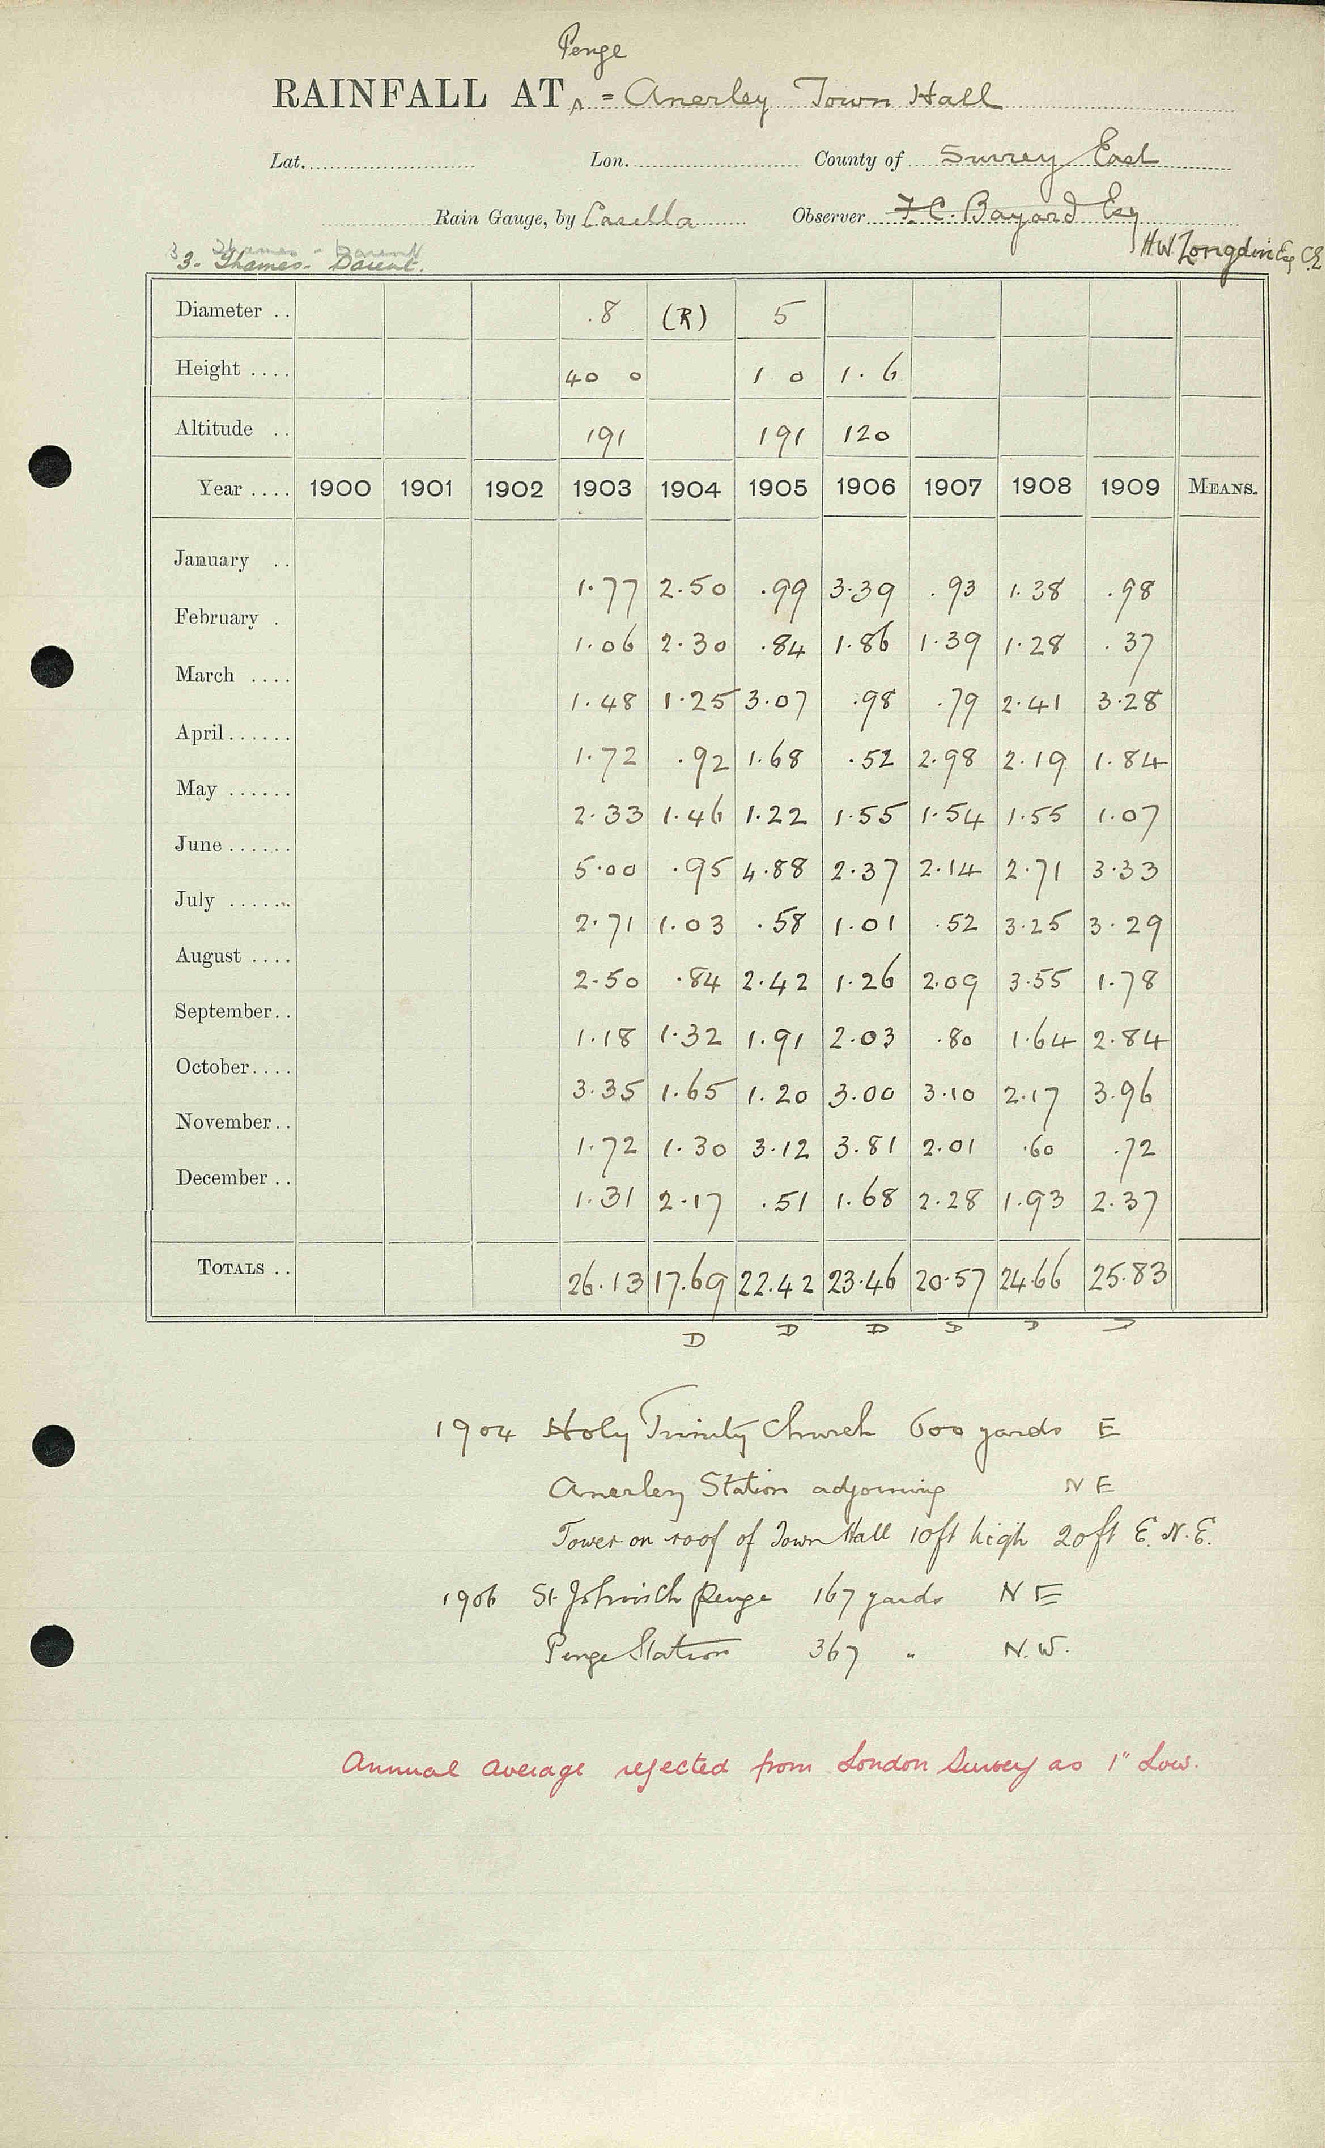 Penge
RAINFALL AT ^ = Anerley Town Hall
Lat. Lon. County of Surrey East
Rain Gauge, by Casella Observer F. C. Bayard Esq
H W Longdin Esq C.E
3. Thames - Darent
3. Thames - Darent.
Diameter .. .8 (R) 5
Height .... 40 0 1 0 1. 6
Altitude .. 191 191 120
Year .... 1900 1901 1902 1903 1904 1905 1906 1907 1908 1909 MEANS.
January .. 1.77 2.50 .99 3.39 .93 1.38 .98
February . 1.06 2.30 .84 1.86 1.39 1.28 .37
March .... 1.48 1.25 3.07 .98 .79 2.41 3.28
April...... 1.72 .92 1.68 .52 2.98 2.19 1.84
May ...... 2.33 1.46 1.22 1.55 1.54 1.55 1.07
June...... 5.00 .95 4.88 2.37 2.14 2.71 3.33
July ...... 2.71 1.03 .58 1.01 .52 3.25 3.29
August .... 2.50 .84 2.42 1.26 2.09 3.55 1.78
September.. 1.18 1.32 1.91 2.03 .80 1.64 2.84
October.... 3.35 1.65 1.20 3.00 3.10 2.17 3.96
November.. 1.72 1.30 3.12 3.81 2.01 .60 .72
December .. 1.31 2.17 .51 1.68 2.28 1.93 2.37
TOTALS .. 26.13 17.69 22.42 23.46 20.57 24.66 25.83
D D D D D D
1904 Holy Trinity Church 600 yards E
Anerley Station adjoining N E
Tower on roof of Town Hall 10ft high 20ft E. N. E.
1906 St John's Ch Penge 167 yards N E
Penge Station 367 " N. W.
Annual average rejected from London Survey as 1" low.